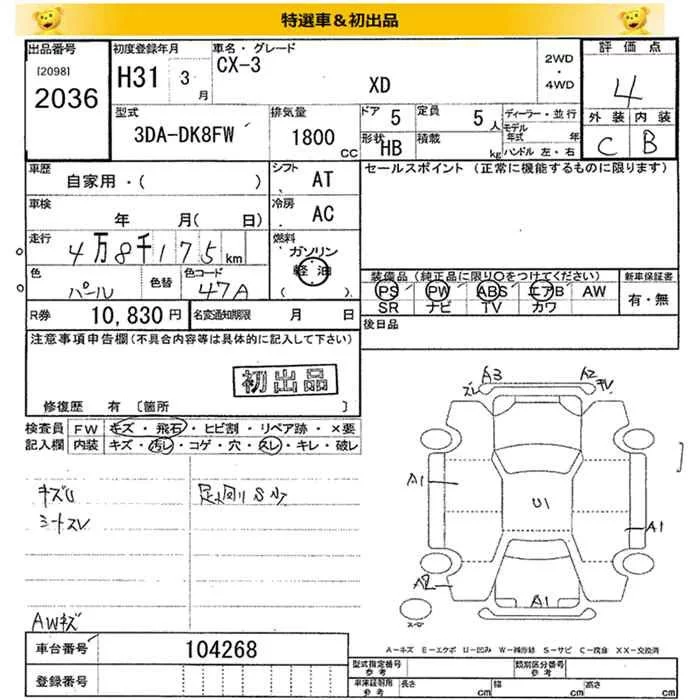 特選車＆初出品
出品番号
[2098]
2036
初度登録年月
H31 3 月
車名・グレード
CX-3
XD
2WD
・
4WD
評価点
4
外装 内装
C B
型式
3DA-DK8FW
排気量
1800 CC
ドア 5
定員 5 人
形状 HB
積載 kg
ディーラー・並行
モデル年式 年
ハンドル 左・右
車歴
自家用・( )
シフト AT
セールスポイント (正常に機能するものに限ります)
車検
年 月( 日)
冷房 AC
走行
4万8千175 km
燃料
ガソリン
軽油
色
パール
色替
色コード
47A
装備品(純正品に限り○をつけてください)
新車保証書
PS PW ABS エアB AW
有・無
SR ナビ TV カワ
R券 10,830円
名変通知期限 月 日
後日品
注意事項申告欄(不具合内容等は具体的に記入して下さい)
初出品
修復歴 有 [箇所 ]
検査員 FW キズ・飛石・ヒビ割・リペア跡・×要
記入欄 内装 キズ・汚レ・コゲ・穴・スレ・キレ・破レ
シートスレ
AWキズ
A3
スレ
A2
A1
U1
A1
A2
A1
車台番号
104268
登録番号
A－キズ E－エクボ U－凹み W－補修跡 S－サビ C－腐食 XX－交換済
型式指定番号
参考
類別区分番号
参考
車庫証明用
参考
長さ cm
幅 cm
高さ cm